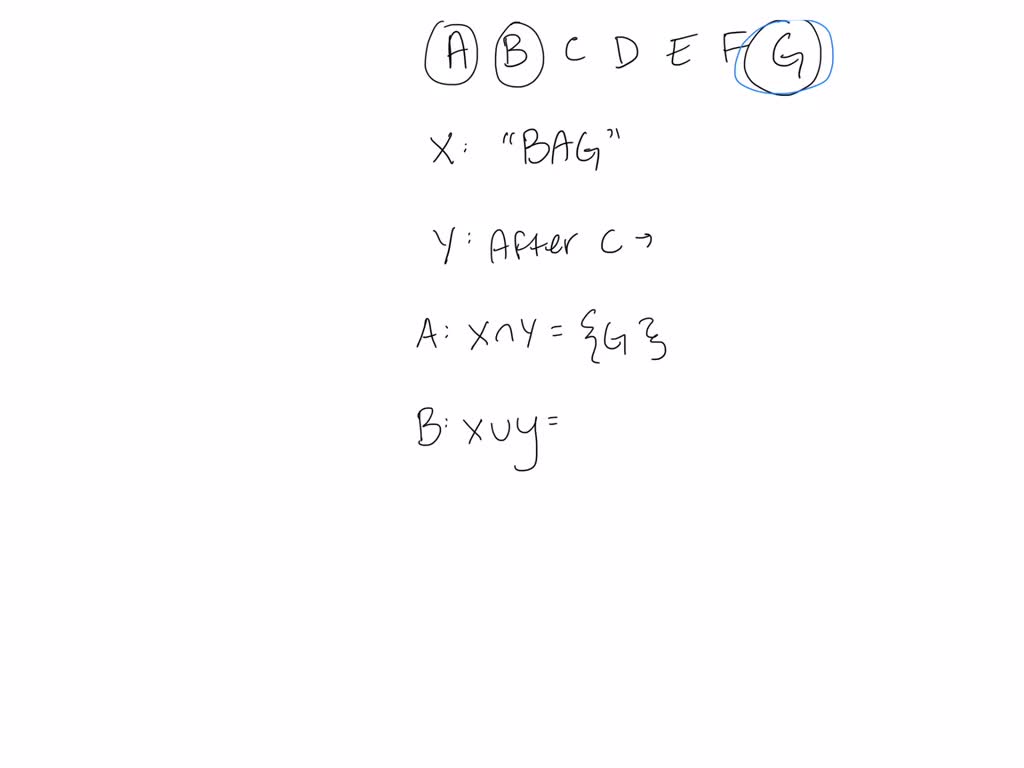 A B C D E F G
X: "BAG"
Y: After C →
A: X∩Y = {G}
B: X∪Y =